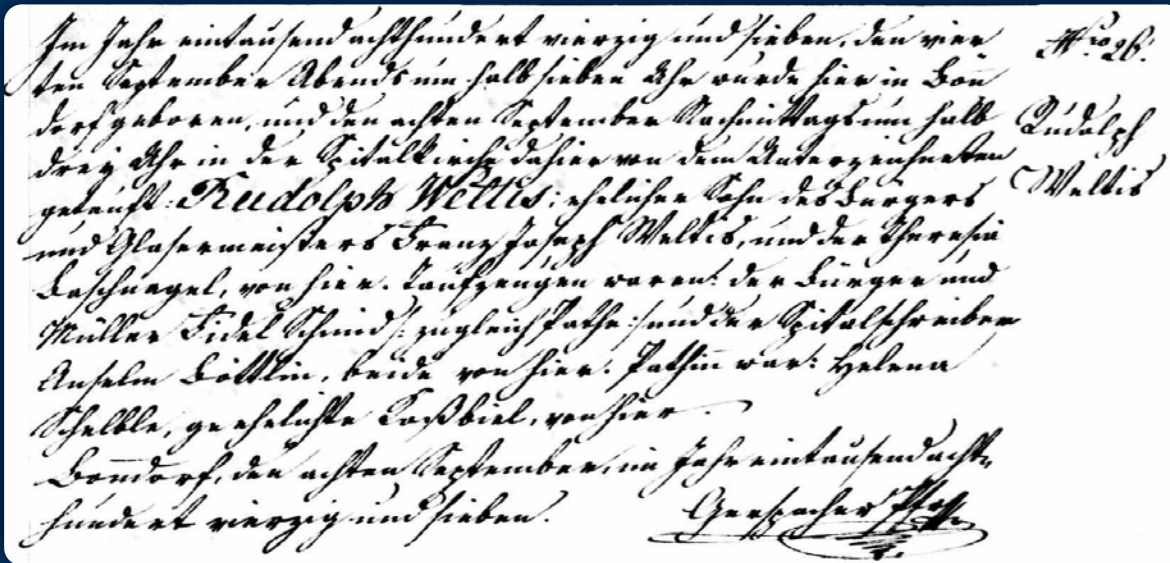 Im Jahr eintausend achthundert vierzig und sieben, den vier
ten September Abends um halb sieben Uhr wurde hier in Bon
dorf geboren, und den achten September Nachmittags um halb
drey Uhr in der Spitalkirche dahier von dem Unterzeichneten
getauft: Rudolph Weltis; ehelicher Sohn des Bürgers
und Glasermeisters Franz Joseph Weltis, und der Theresia
Baschnagel, von hier. Taufzeugen waren: der Bürger und
Müller Fidel Schmid /: zugleich Pathe :/ und der Spitalschreiber
Anselm Böttlin, beide von hier. Pathin war: Helena
Schelble, geehelichte Koßbiel, von hier.
Bonndorf, den achten September, im Jahr eintausend acht-
hundert vierzig und sieben.
Gerspacher Pfr
Nro 26.
Rudolph
Weltis